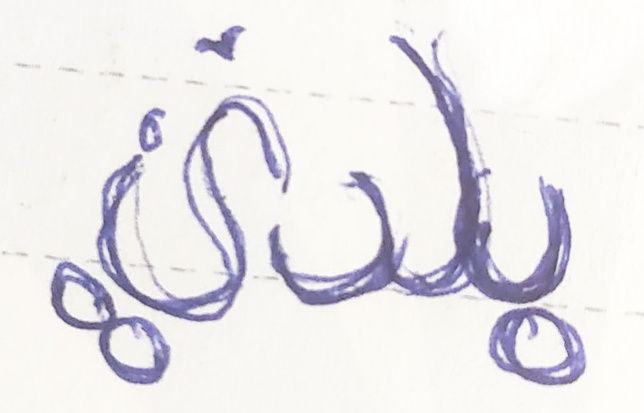 بلدي